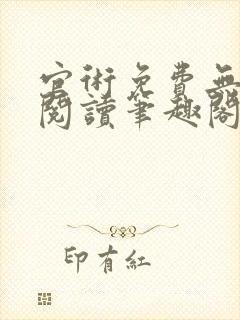 官術免費無
閱讀筆趣閣
印有紅